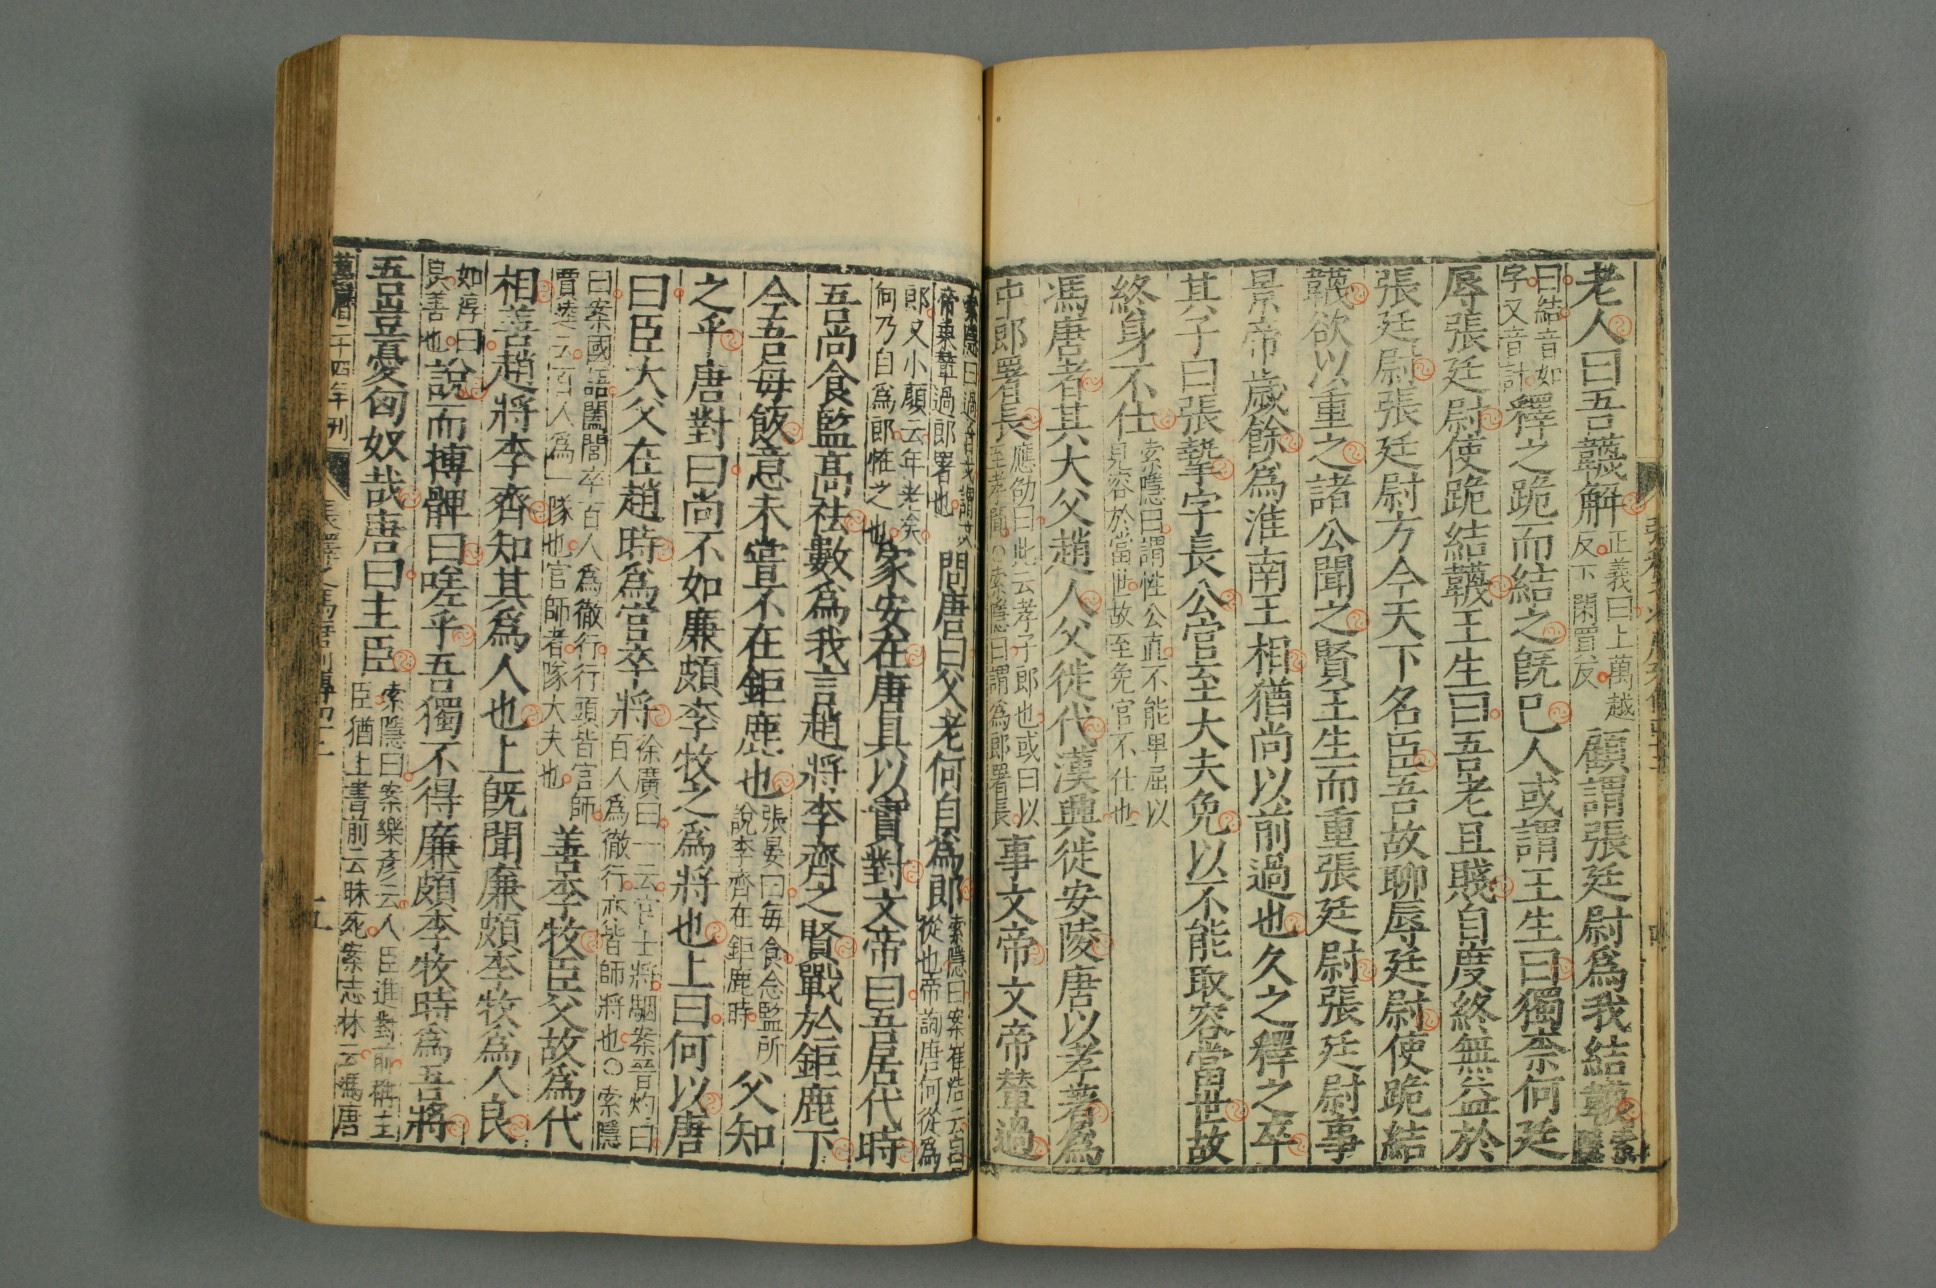 老人曰吾韈解正義曰上萬越反下閑買反顧謂張廷尉爲我結韈索隱
曰結音如字又音計釋之跪而結之旣已人或謂王生曰獨柰何廷
辱張廷尉使跪結韈王生曰吾老且賤自度終無益於
張廷尉張廷尉方今天下名臣吾故聊辱廷尉使跪結
韈欲以重之諸公聞之賢王生而重張廷尉張廷尉事
景帝歲餘爲淮南王相猶尚以前過也久之釋之卒
其子曰張摯字長公官至大夫免以不能取容當世故
終身不仕索隱曰謂性公直不能卑屈以見容於當世故至免官不仕也
馮唐者其大父趙人父徙代漢興徙安陵唐以孝著爲
中郎署長應劭曰此云孝子郎也或曰以至孝聞○索隱曰謂爲郎署長事文帝文帝輦過
索隱曰過音戈謂文帝乘輦過郎署也問唐曰父老何自爲郎索隱曰案崔浩云自從也帝詢唐何從爲
郎又小顏云年老矣何乃自爲郎怪之也家安在唐具以實對文帝曰吾居代時
吾尚食監高祛數爲我言趙將李齊之賢戰於鉅鹿下
今吾每飯意未嘗不在鉅鹿也張晏曰每食念監所說李齊在鉅鹿時父知
之乎唐對曰尚不如廉頗李牧之爲將也上曰何以唐
曰臣大父在趙時爲官卒將徐廣曰一云官士將駰案晉灼曰百人爲徹行亦皆師將也○索隱
曰案國語闔閭卒百人爲徹行行頭皆官師賈逵云百人爲一隊也官師者隊大夫也善李牧臣父故爲代
相善趙將李齊知其爲人也上旣聞廉頗李牧爲人良
如淳曰良善也說而搏髀曰嗟乎吾獨不得廉頗李牧時爲吾將
吾豈憂匈奴哉唐曰主臣索隱曰案樂彥云人臣進對前稱主臣猶上書前云昧死案志林云馮唐
張釋之馮唐列傳四十二
五